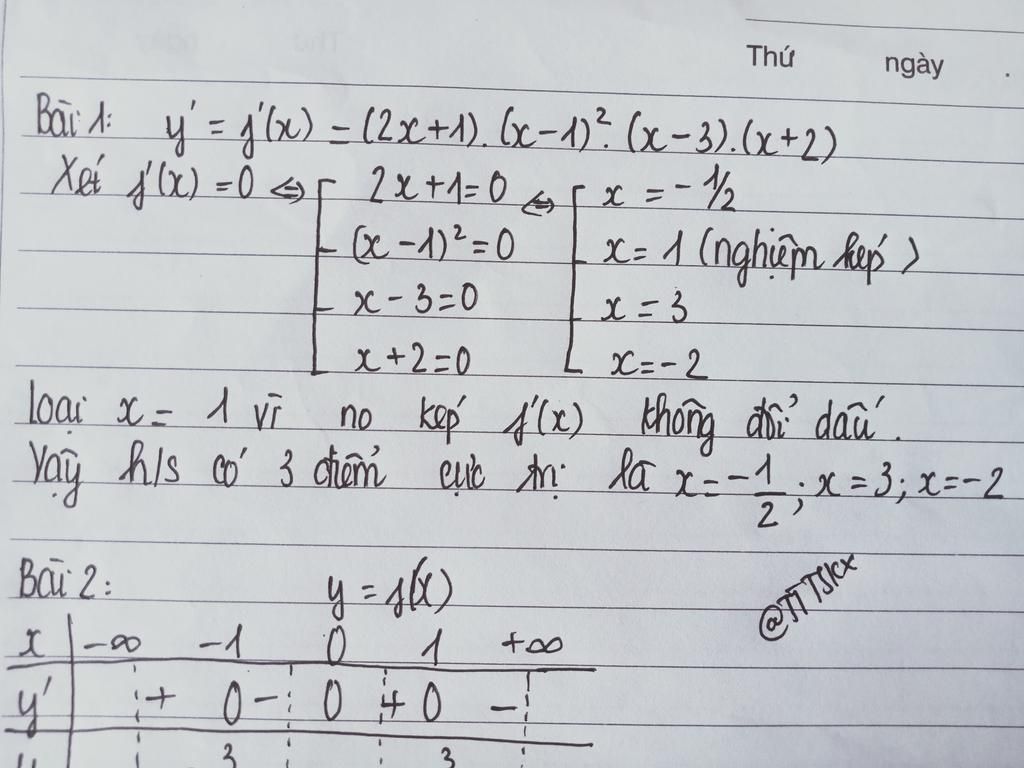 Thứ ngày .
Bài 1: y' = f'(x) = (2x+1).(x-1)².(x-3).(x+2)
Xét f'(x) = 0 ⇔ [ 2x+1=0 ⇔ [ x = -1/2
(x-1)²=0 x=1 (nghiệm kép)
x-3=0 x=3
x+2=0 x=-2
Loại x=1 vì no kép f'(x) không đổi dấu.
Vậy h/s có 3 điểm cực trị là x=-1/2; x=3; x=-2
Bài 2: y=f(x)
@TTTSKX
x -∞ -1 0 1 +∞
y' + 0 - 0 + 0 -
3 3